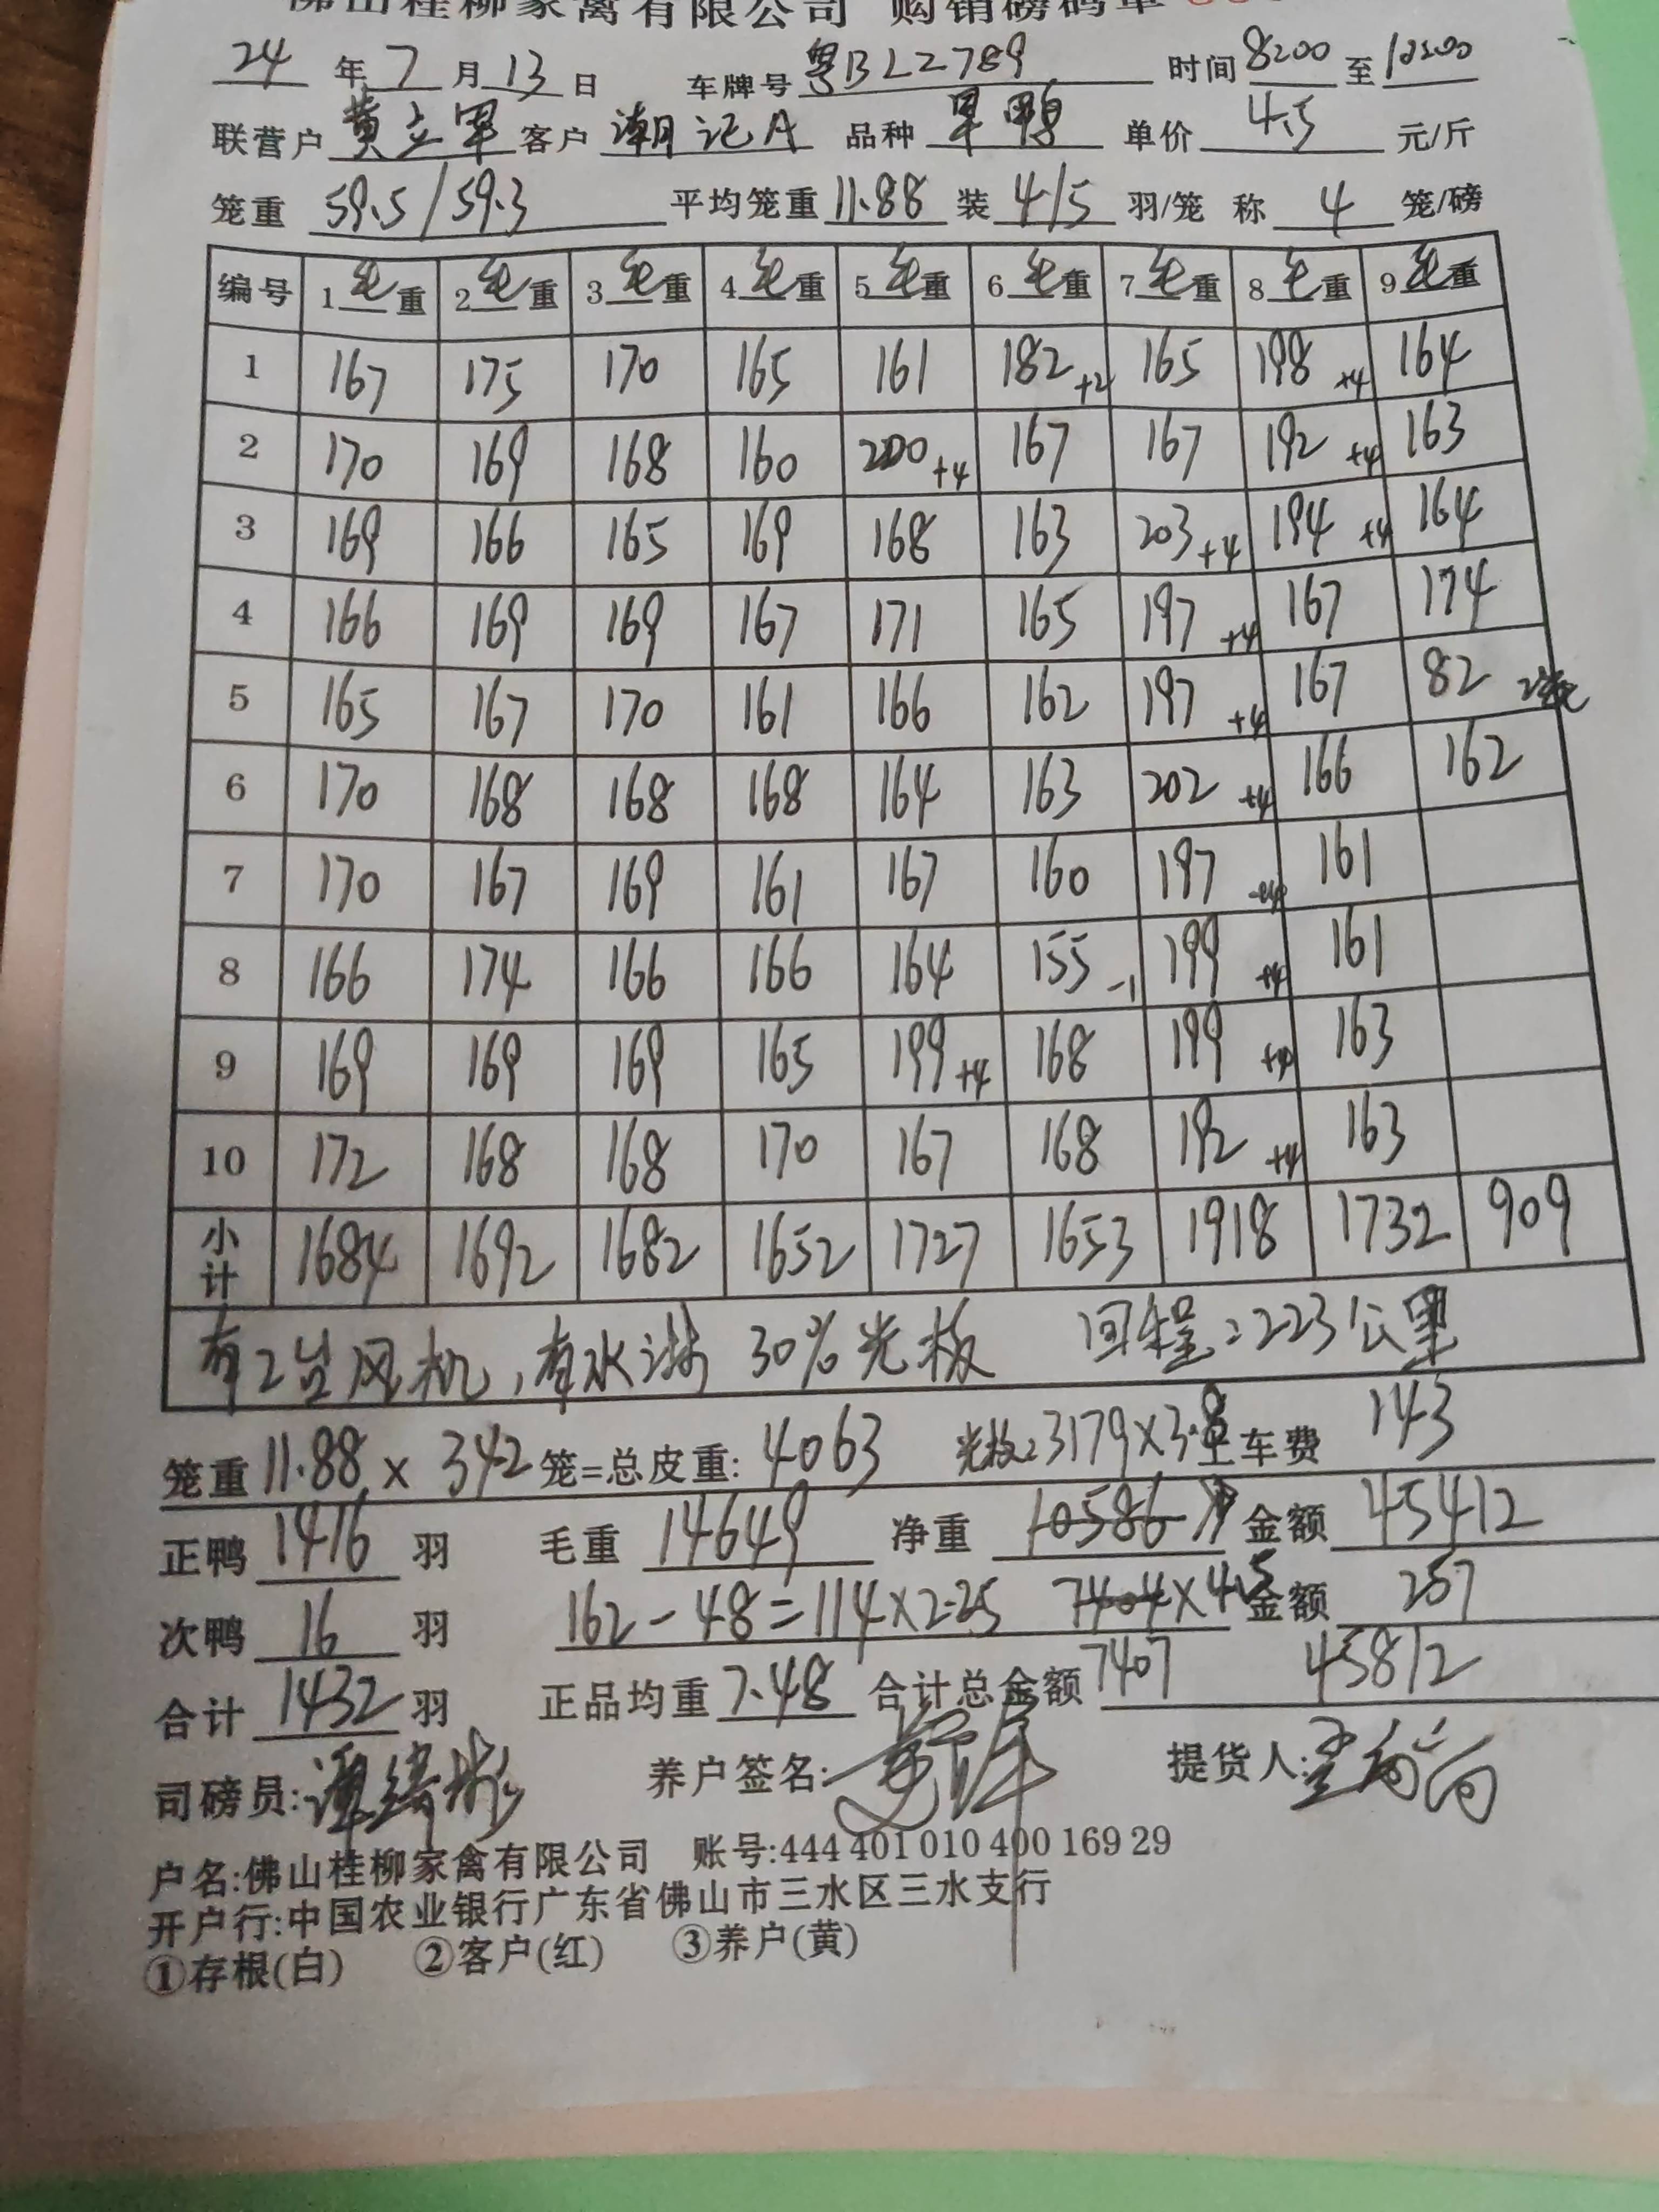 佛山桂柳家禽有限公司 购销磅码单
24 年 7 月 13 日 车牌号 粤BLZ789 时间 8:00 至 10:00
联营户 黄立军 客户 潮记A 品种 旱鸭 单价 4.5 元/斤
笼重 59.5/59.3 平均笼重 11.88 装 4/5 羽/笼 称 4 笼/磅
编号 1 毛重 2 毛重 3 毛重 4 毛重 5 毛重 6 毛重 7 毛重 8 毛重 9 毛重
1 167 175 170 165 161 182 +2 165 198 +4 164
2 170 169 168 160 200 +4 167 167 192 +4 163
3 169 166 165 169 168 163 203 +4 194 +4 164
4 166 169 169 167 171 165 197 +4 167 174
5 165 167 170 161 166 162 197 +4 167 82 2笼
6 170 168 168 168 164 163 202 +4 166 162
7 170 167 169 161 167 160 197 +4 161
8 166 174 166 166 164 155 -1 199 +4 161
9 169 169 169 165 199 +4 168 199 +4 163
10 172 168 168 170 167 168 192 +4 163
小计 1684 1692 1682 1652 1727 1653 1918 1732 909
有2台风机,有水淋 30%光板 回程:223公里
笼重 11.88 × 342 笼=总皮重: 4063 光板:3179×3.8 车费 143
正鸭 1416 羽 毛重 14649 净重 10586 金额 45412
次鸭 16 羽 162-48=114×2.25 7404×4.5 金额 257
合计 1432 羽 正品均重 7.48 合计总金额 7407 45812
司磅员: 养户签名: 提货人:
户名:佛山桂柳家禽有限公司 账号:444 401 010 400 169 29
开户行:中国农业银行广东省佛山市三水区三水支行
①存根(白) ②客户(红) ③养户(黄)